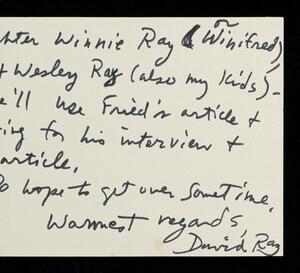 or
hter Winnie Ray (Winifred)
+ Wesley Ray (also my kids) -
e'll use Fried's article +
ing for his interview +
article.
o hope to get over sometime.
Warmest regards,
David Ray